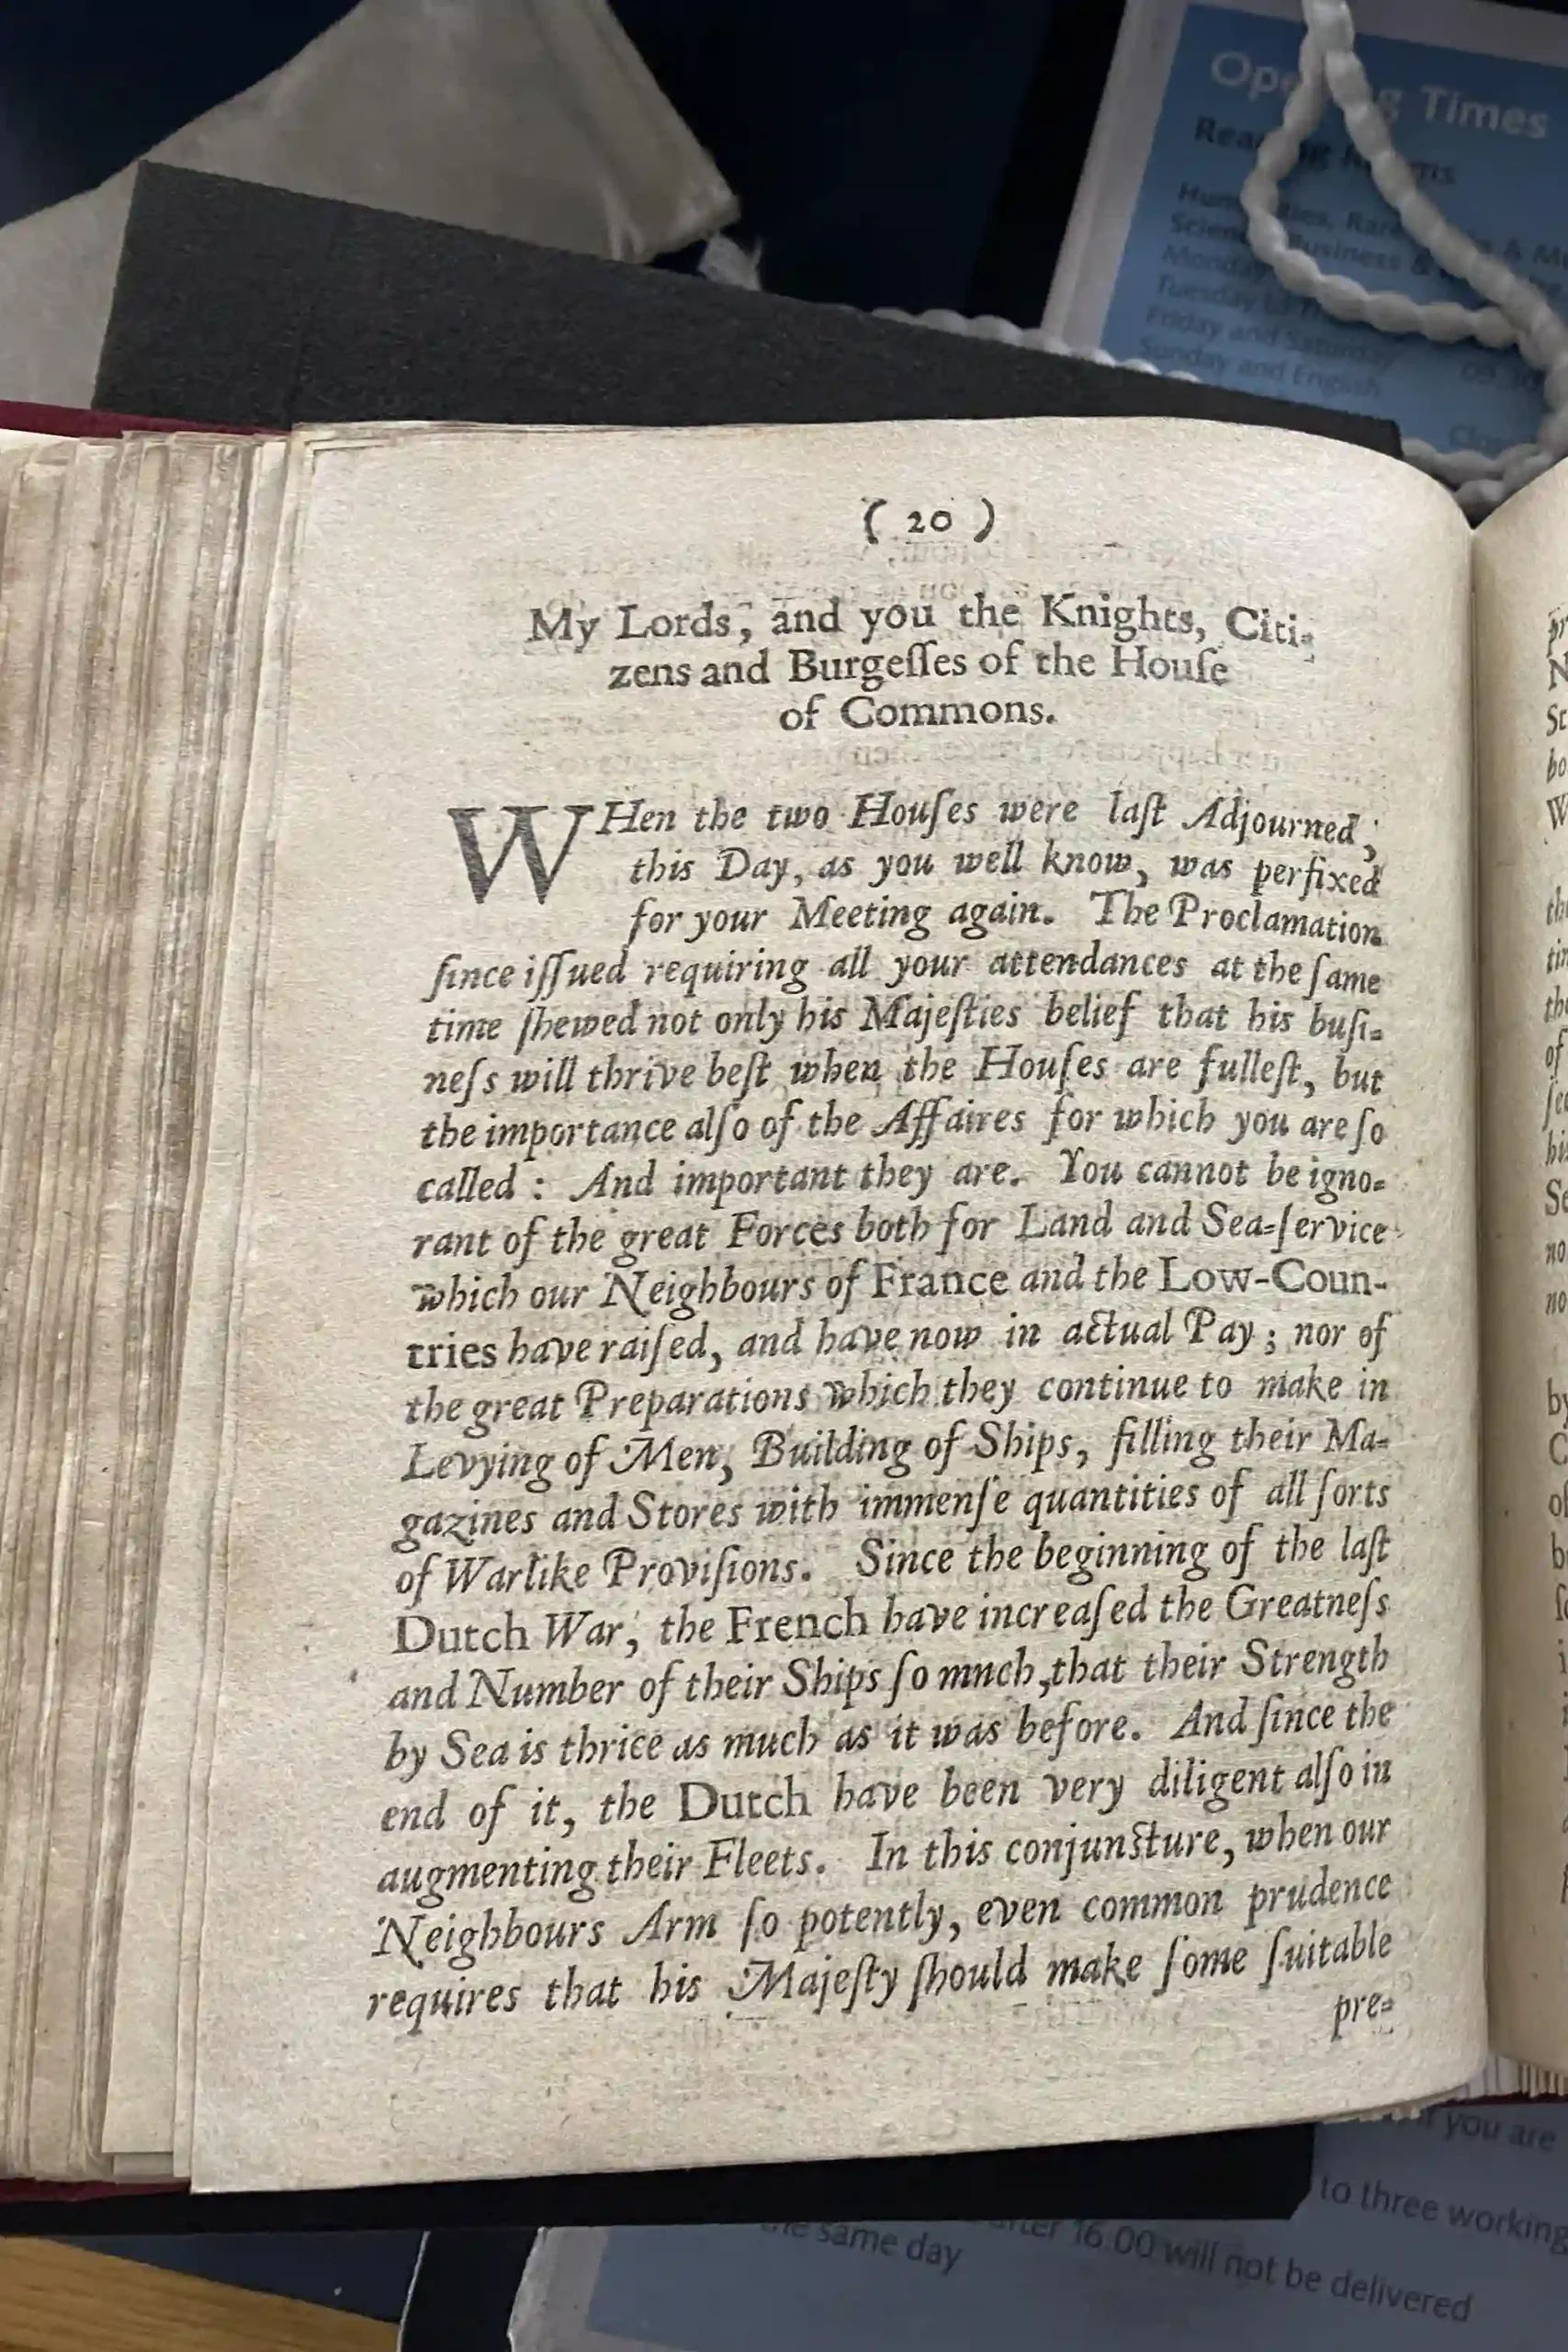 Opening Times
Reading Rooms
Monday
Tuesday
Friday and Saturday
Sunday and English
( 20 )
My Lords, and you the Knights, Citi-
zens and Burgeſſes of the Houſe
of Commons.
WHen the two Houſes were laſt Adjourned,
this Day, as you well know, was perfixed
for your Meeting again. The Proclamation
ſince iſſued requiring all your attendances at the ſame
time ſhewed not only his Majeſties belief that his buſi-
neſs will thrive beſt when the Houſes are fulleſt, but
the importance alſo of the Affaires for which you are ſo
called : And important they are. You cannot be igno-
rant of the great Forces both for Land and Sea-ſervice
which our Neighbours of France and the Low-Coun-
tries have raiſed, and have now in actual Pay ; nor of
the great Preparations which they continue to make in
Levying of Men, Building of Ships, filling their Ma-
gazines and Stores with immenſe quantities of all ſorts
of Warlike Proviſions. Since the beginning of the laſt
Dutch War, the French have increaſed the Greatneſs
and Number of their Ships ſo mnch, that their Strength
by Sea is thrice as much as it was before. And ſince the
end of it, the Dutch have been very diligent alſo in
augmenting their Fleets. In this conjuncture, when our
Neighbours Arm ſo potently, even common prudence
requires that his Majeſty ſhould make ſome ſuitable
pre-
you are
to three working
after 16.00 will not be delivered
the same day